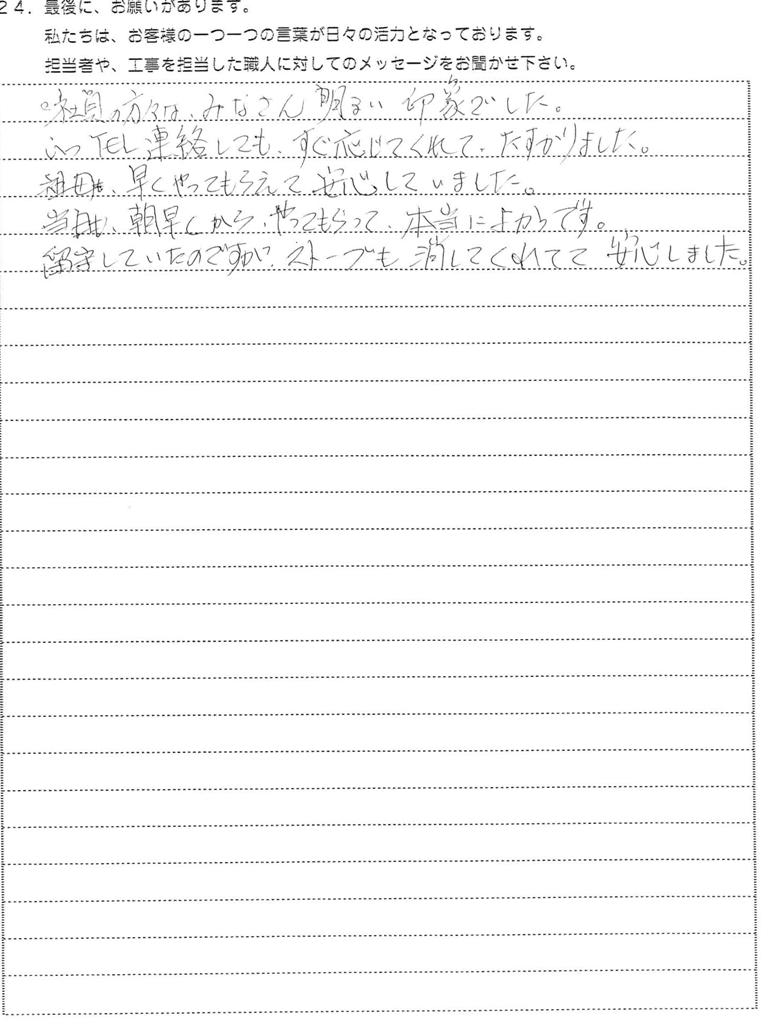 24．最後に、お願いがあります。
私たちは、お客様の一つ一つの言葉が日々の活力となっております。
担当者や、工事を担当した職人に対してのメッセージをお聞かせ下さい。
社員の方々は、みなさん 明るい 印象でした。
いつTEL連絡しても、すぐ応じてくれて、たすかりました。
祖母も、早くやってもらえて 安心していました。
当日も、朝早くから、やってもらって、本当によかったです。
留守していたのですが、ストーブも 消してくれてて 安心しました。